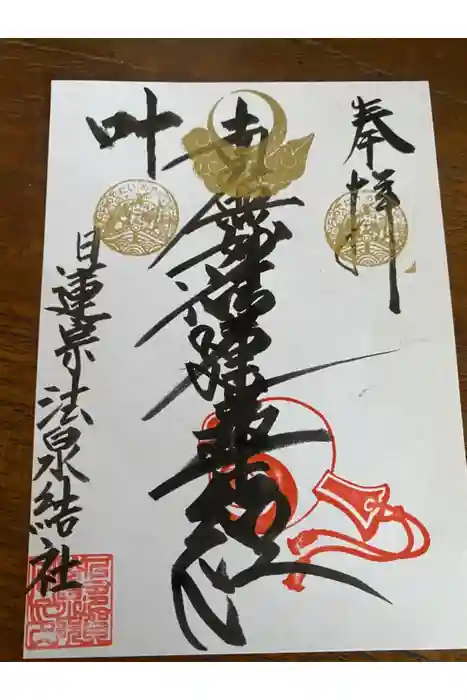 奉拝
南無妙法蓮華経
叶
日蓮宗法泉結社